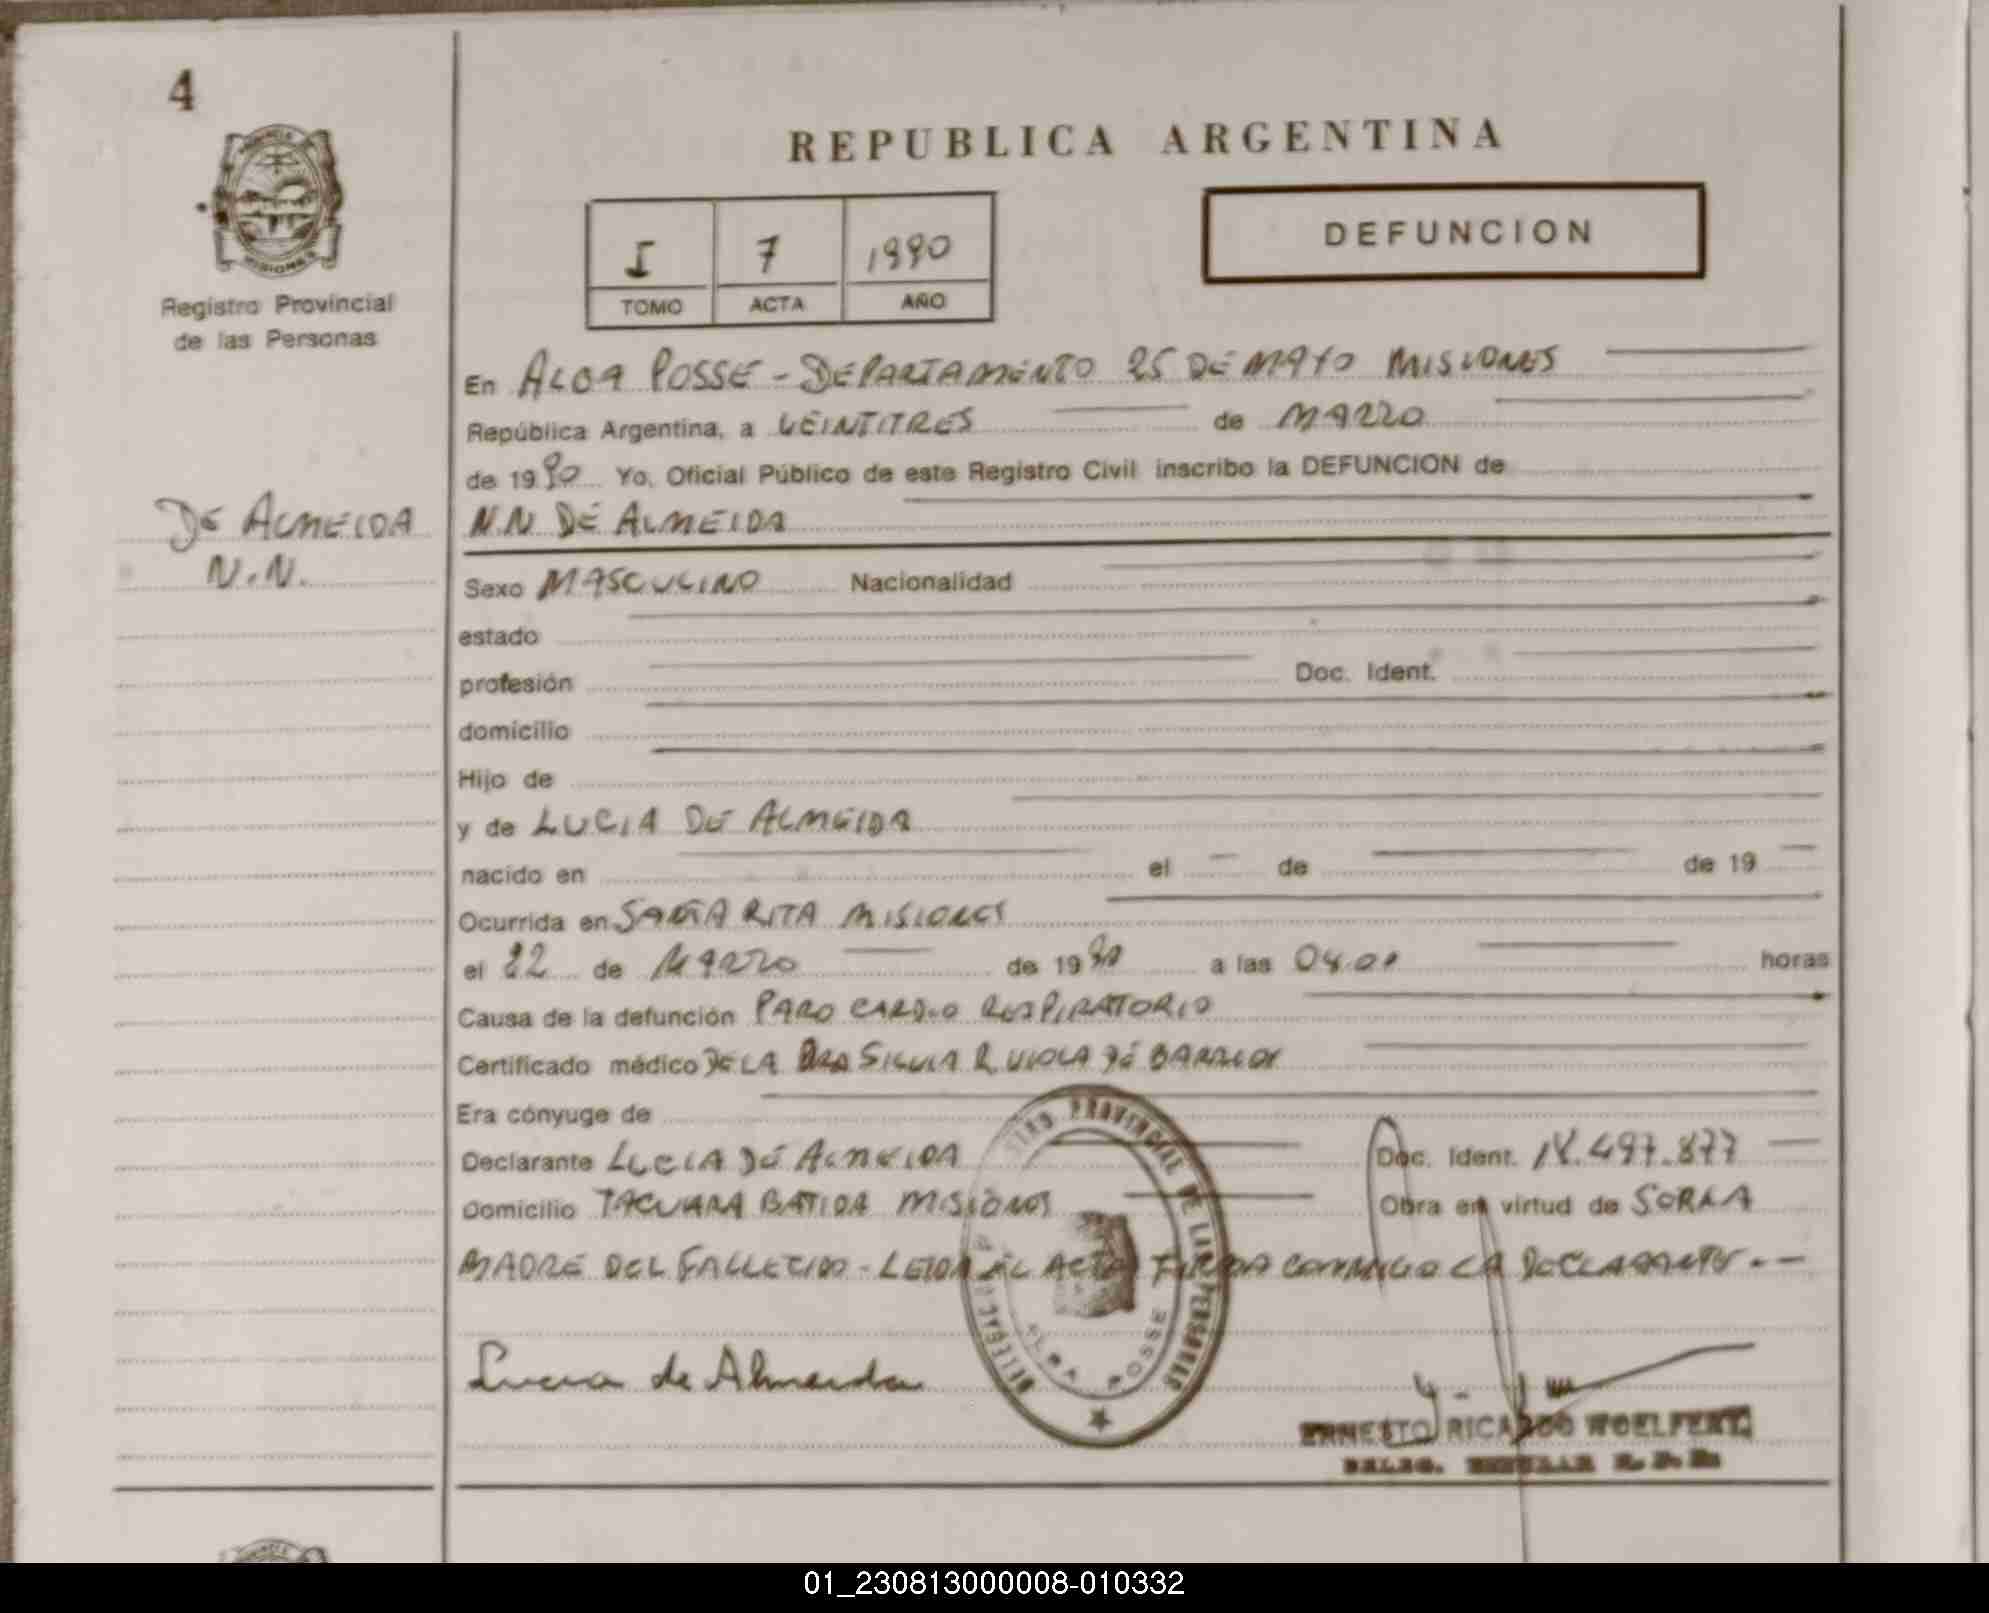 4
REPUBLICA ARGENTINA
Registro Provincial
de las Personas
I 7 1990
TOMO ACTA AÑO
DEFUNCION
En ALBA POSSE - DEPARTAMENTO 25 DE MAYO MISIONES
República Argentina, a VEINTITRES de MARZO
de 1990 Yo, Oficial Público de este Registro Civil inscribo la DEFUNCION de
DE ALMEIDA
N.N.
N.N DE ALMEIDA
Sexo MASCULINO Nacionalidad
estado
profesión Doc. Ident.
domicilio
Hijo de
y de LUCIA DE ALMEIDA
nacido en el de de 19
Ocurrida en SANTA RITA MISIONES
el 22 de MARZO de 1990 a las 04.00 horas
Causa de la defunción PARO CARDIO RESPIRATORIO
Certificado médico DE LA DRA SILVIA R. VIOLA DE BARRIOS
Era cónyuge de
Declarante LUCIA DE ALMEIDA Doc. Ident. 18.497.877
Domicilio TACUARA BATIDA MISIONES Obra en virtud de SER LA
MADRE DEL FALLECIDO - LEIDA EL ACTA FIRMA CONMIGO LA DECLARANTE . -
Lucia de Almeida
PROVINCIAL DE LAS PERSONAS
ALBA POSSE
ERNESTO RICARDO WOELFERT
DELEG. TITULAR R. P. P.
01_230813000008-010332